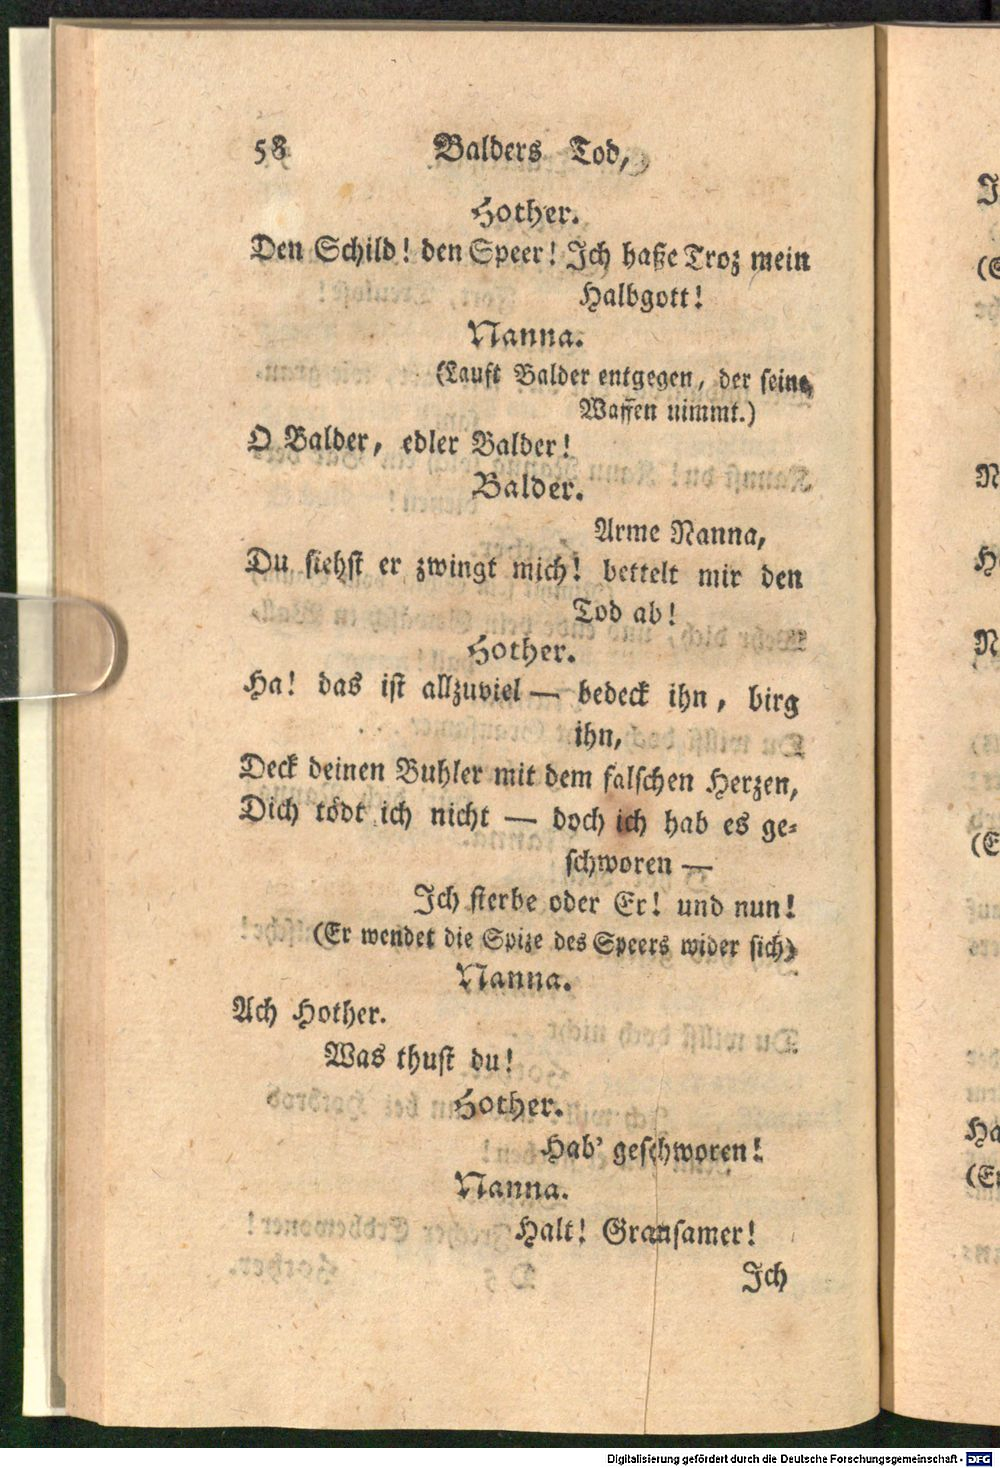 58 Balders Tod,
Hother.
Den Schild! den Speer! Ich haße Troz mein
Halbgott!
Nanna.
(Lauft Balder entgegen, der seine
Waffen nimmt.)
O Balder, edler Balder!
Balder.
Arme Nanna,
Du siehst er zwingt mich! bettelt mir den
Tod ab!
Hother.
Ha! das ist allzuviel — bedeck ihn, birg
ihn,
Deck deinen Buhler mit dem falschen Herzen,
Dich tödt ich nicht — doch ich hab es ge-
schworen —
Ich sterbe oder Er! und nun!
(Er wendet die Spize des Speers wider sich)
Nanna.
Ach Hother.
Was thust du!
Hother.
Hab' geschworen!
Nanna.
Halt! Gransamer!
Ich
Digitalisierung gefördert durch die Deutsche Forschungsgemeinschaft - DFG